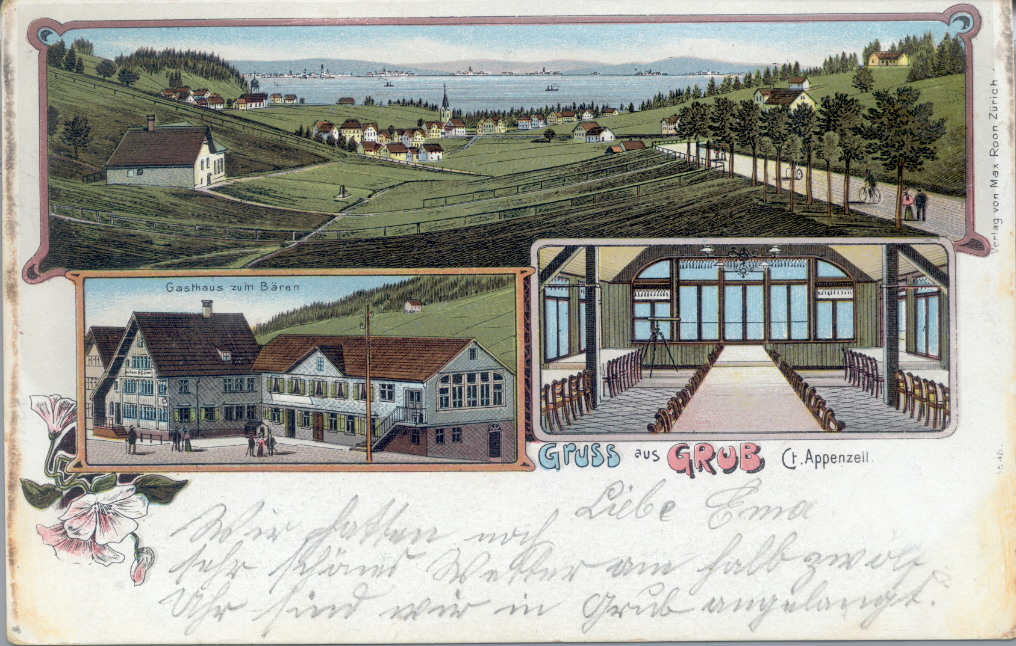 Verlag von Max Roon Zürich
Gasthaus zum Bären
GRUSS aus GRUB Ct. Appenzell.
Liebe Ema.
Wir hatten noch
sehr schönes Wetter am halb zwölf
Uhr sind wir in Grub angelangt.